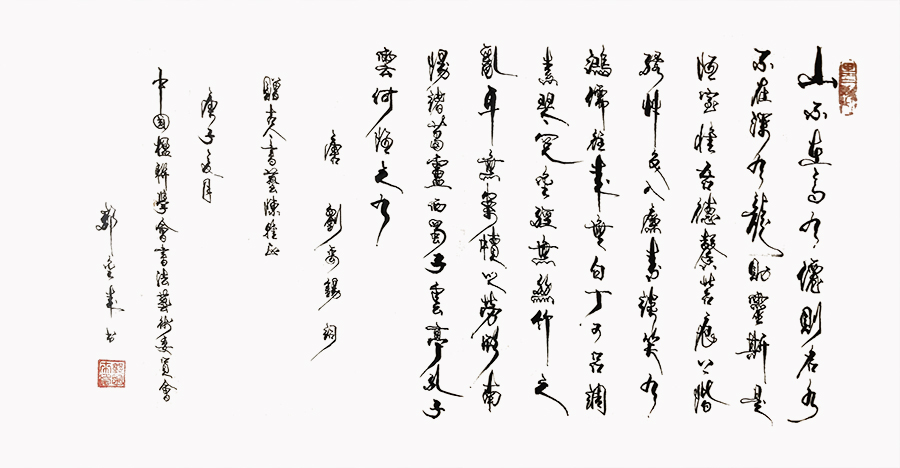 山不在高有僊則名水
不在深有龍則靈斯是
陋室惟吾德馨苔痕上階
綠艸色入簾青談笑有
鴻儒往來無白丁可㠯調
素琴閱金經無絲竹之
亂耳無案牘之勞形南
陽諸葛廬西蜀子雲亭孔子
雲何陋之有
唐 劉禹錫 詞
贈古今書藝陳雅正
庚子夏月
中国楹聯學會書法藝術委員會
鄭金來 书